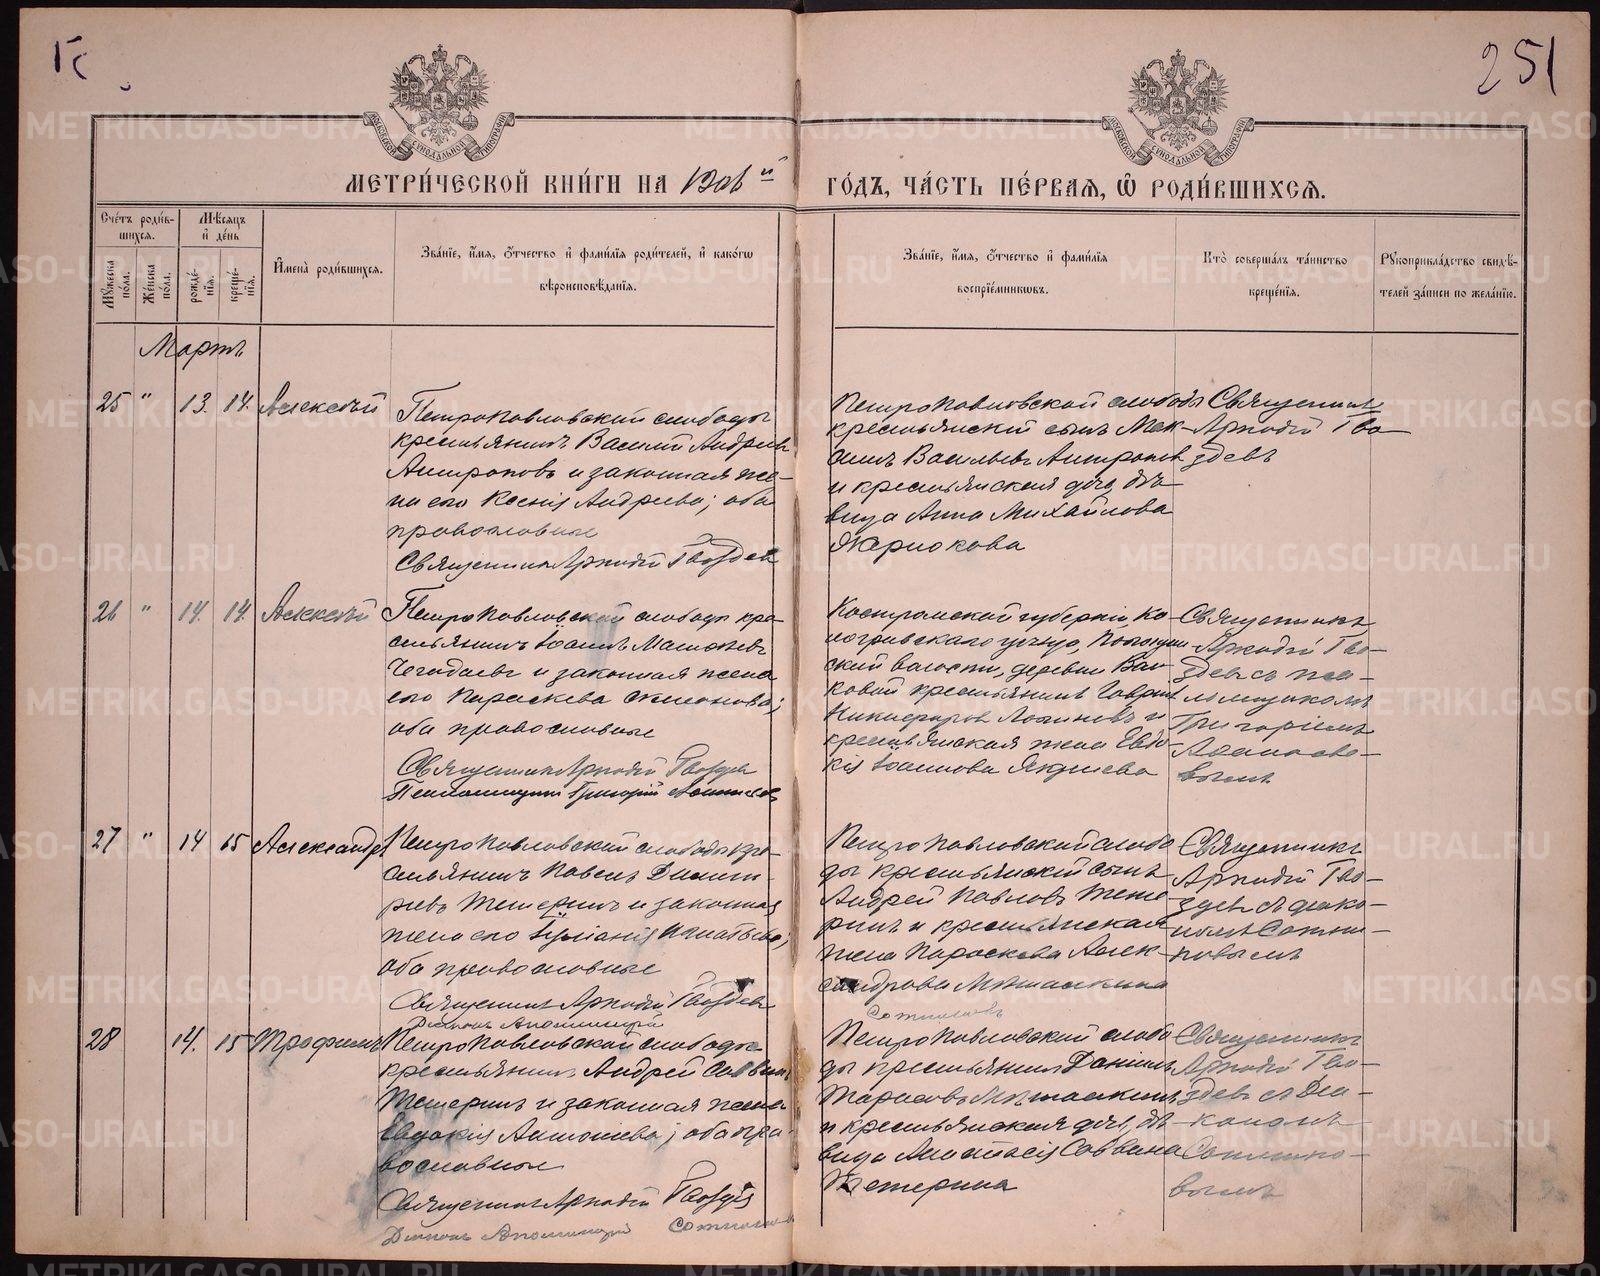 251
МОСКОВСКОЙ СѴНОДАЛЬНОЙ ТИПОГРАФІИ
МОСКОВСКОЙ СѴНОДАЛЬНОЙ ТИПОГРАФІИ
МЕТРИ́ЧЕСКОЙ КНИ́ГИ НА 1906й ГО́ДЪ, ЧА́СТЬ ПЕ́РВАЯ, Ѡ РОДИ́ВШИХСЯ.
Сче́тъ роди́в-
шихся.
Мѣ́сяцъ
и де́нь
Мꙋ́жеска по́ла.
Же́нска по́ла.
рожде́-
нїя.
креще́-
нїя.
Имена̀ роди́вшихся.
Зва́нїе, и́мя, о́тчество и фами́лїя роди́телей, и како́гѡ
вѣроисповѣ́данїя.
Зва́нїе, и́мя, о́тчество и фами́лїя
воспрїе́мникѡвъ.
Кто̀ соверша́лъ та́инство
креще́нїя.
Рꙋкоприкла́дство свидѣ́-
телей за́писи по жела́нїю.
Мартъ
25 " 13. 14. Алексѣй
Петропавловской слободы
крестьянинъ Василій Андреевъ
Антроповъ и законная же-
на его Ксенія Андреева; оба
православные
Священникъ Аркадій Гвоздевъ
Петропавловской слободы
крестьянскій сынъ
Васильевъ Антроповъ
и крестьянская дочь, дѣ-
вица Анна Михайлова
Священникъ
Аркадій Гво-
здевъ
26 " 14. 14. Алексѣй
Петропавловской слободы кре-
стьянинъ Іоаннъ
и законная жена
его Параскева
оба православные
Священникъ Аркадій Гвоздевъ
Псаломщикъ Григорій
Костромской губерніи, Ко-
логривскаго уѣзда,
ской волости, деревни
крестьянинъ Гаврiилъ
Никифоровъ и
крестьянская жена Евдо-
кія Іоаннова
Священникъ
Аркадій Гво-
здевъ съ пса-
ломщикомъ
Григоріемъ
27 " 14 15 Александръ
Петропавловской слободы кре-
стьянинъ Павелъ Димит-
ріевъ Тетеринъ и законная
жена его Іуліанія Игнатьева;
оба православные
Священникъ Аркадій Гвоздевъ
Діаконъ Аполлинарій Сотниковъ
Петропавловской слобо-
ды крестьянскій сынъ
Андрей Павловъ Тете-
ринъ и крестьянская
жена Параскева Алек-
сандрова
Священникъ
Аркадій Гво-
здевъ съ діако-
номъ Сотни-
ковымъ
28 14. 15 Трофимъ
Петропавловской слободы
крестьянинъ Андрей Саввинъ
Тетеринъ и законная жена
Евдокія Антоніева; оба пра-
вославные
Священникъ Аркадій Гвоздевъ
Діаконъ Аполлинарій Сотниковъ
Петропавловской слобо-
ды крестьянинъ Даніилъ
Тарасовъ
и крестьянская дочь, дѣ-
вица Анастасія Саввина
Тетерина
Священникъ
Аркадій Гво-
здевъ съ Діа-
кономъ
Сотнико-
вымъ
METRIKI.GASO-URAL.RU